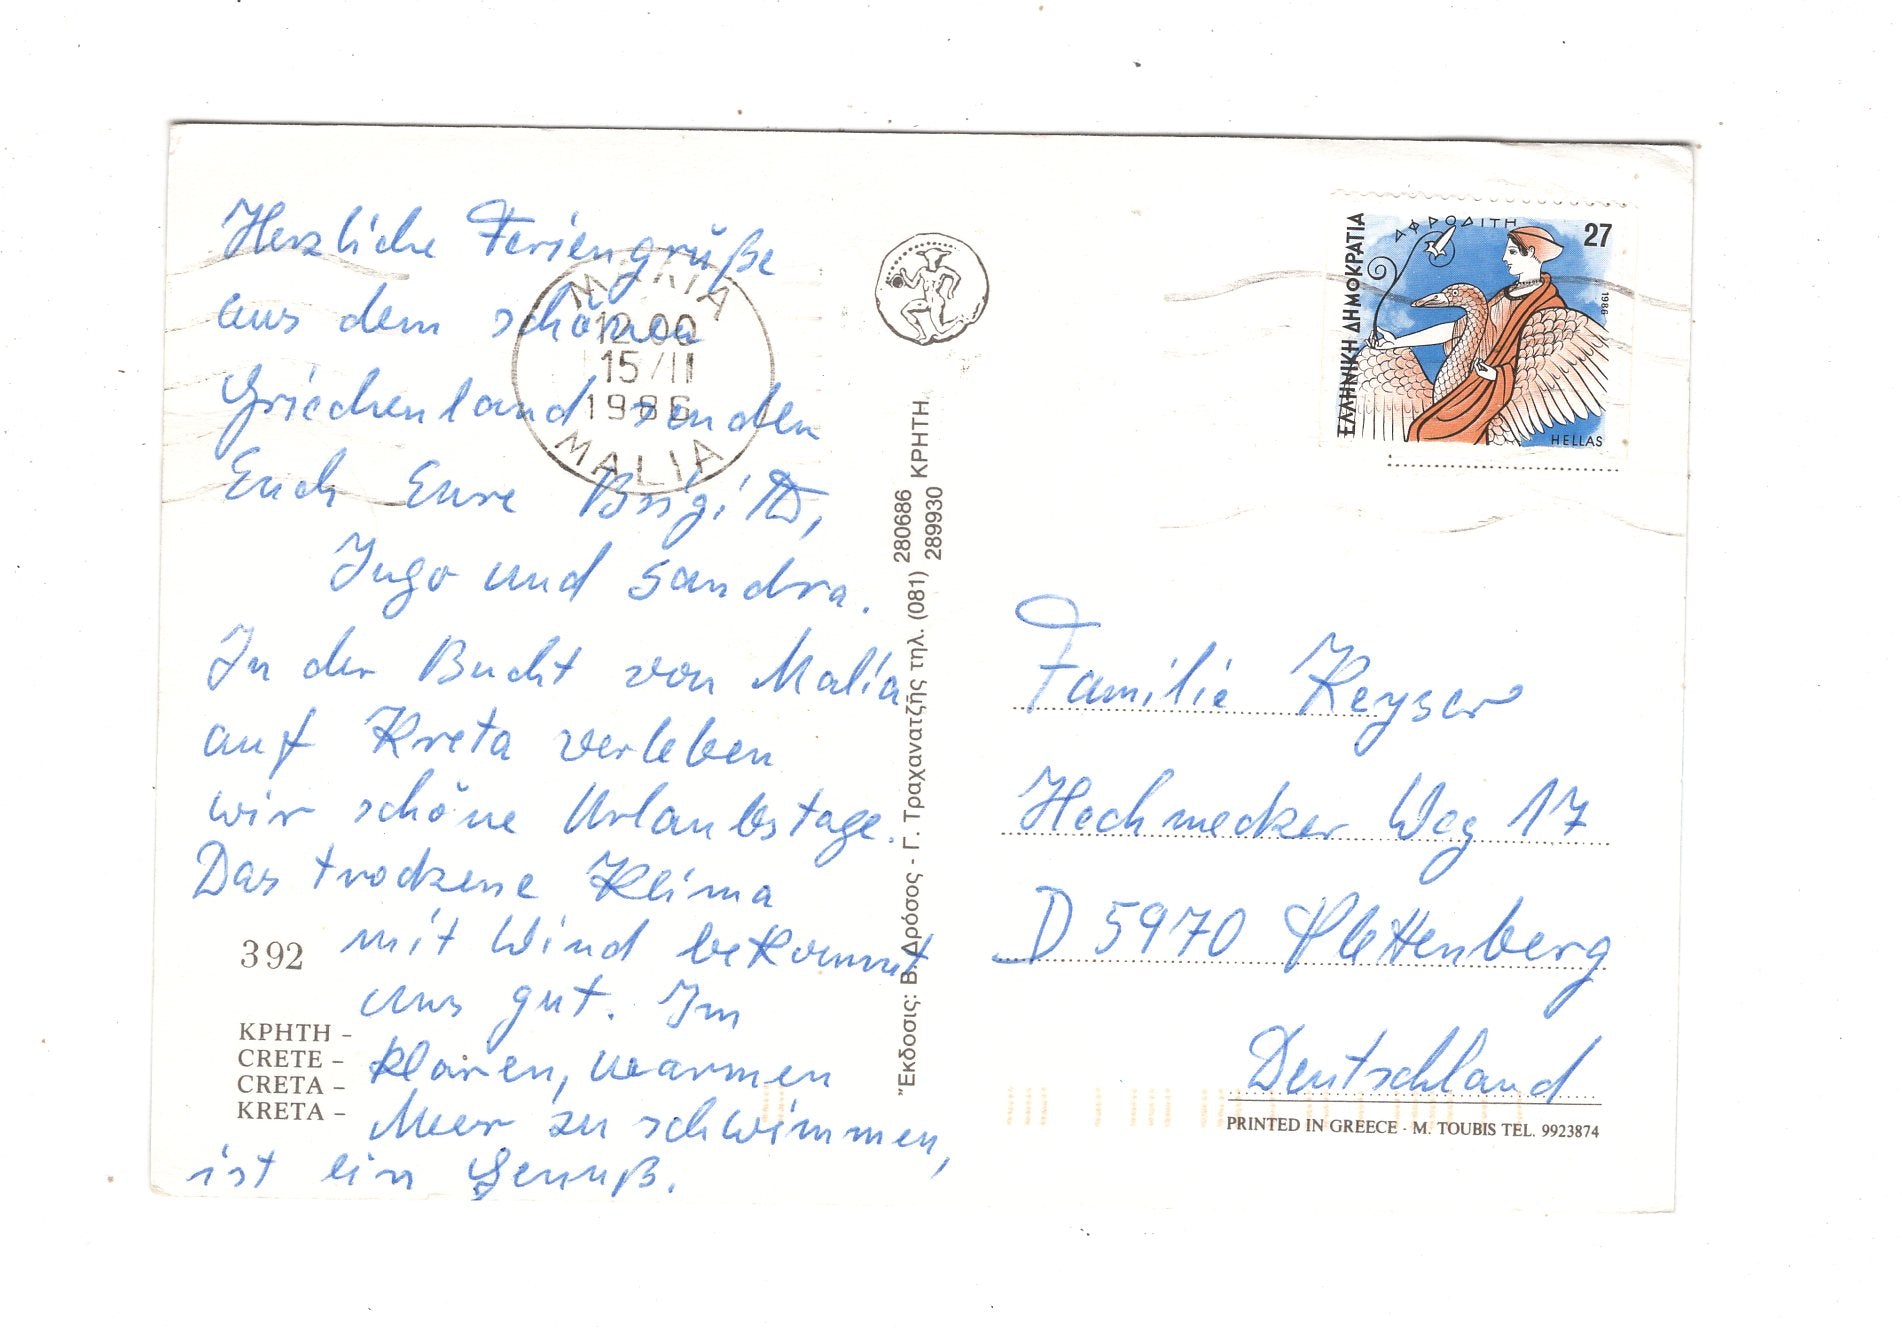 Herzliche Feriengrüße
aus dem schönen
Griechenland senden
Euch Eure Brigitte,
Ingo und Sandra.
In der Bucht von Malia
auf Kreta verleben
wir schöne Urlaubstage.
Das trockene Klima
mit Wind bekommt
uns gut. Im
klaren, warmen
Meer zu schwimmen,
ist ein Genuß.
ΜΑΛΙΑ
12.00
15/II
1986
MALIA
392
ΚΡΗΤΗ -
CRETE -
CRETA -
KRETA -
"Εκδοσις: Β. Δρόσος - Γ. Τραχανατζής τηλ. (081) 280686
289930 ΚΡΗΤΗ
ΕΛΛΗΝΙΚΗ ΔΗΜΟΚΡΑΤΙΑ
ΑΦΡΟΔΙΤΗ
27
1986
HELLAS
Familie Keyser
Hechmecker Weg 17
D 5970 Plettenberg
Deutschland
PRINTED IN GREECE - M. TOUBIS TEL. 9923874